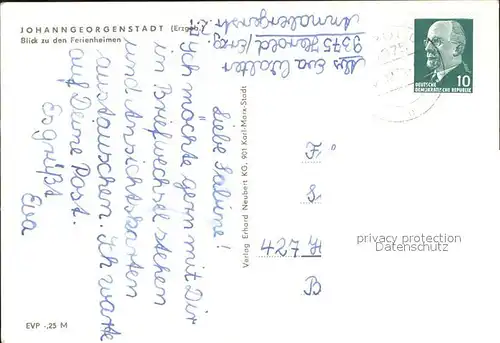 JOHANNGEORGENSTADT (Erzgeb.)
Blick zu den Ferienheimen
Liebe Sabine!
Ich möchte gern mit Dir
in Briefwechsel stehen
und Ansichtskarten
austauschen. Ich warte
auf Deine Post.
Es grüßt
Eva
Abs. Eva Walter
9375 Herold/Erzg.
Annabergerstr.
EVP -,25 M
Verlag Erhard Neubert KG, 901 Karl-Marx-Stadt
10
DEUTSCHE
DEMOKRATISCHE REPUBLIK
F
S
427 H
B
privacy protection
Datenschutz